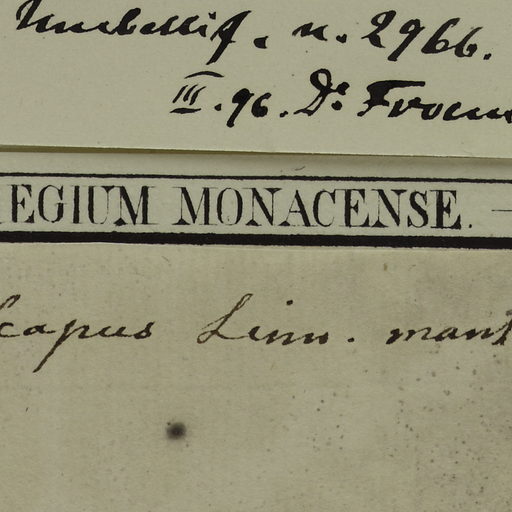 Umbellif. n. 2966.
III. 96. Dr.
EGIUM MONACENSE.
capus Linn. mant